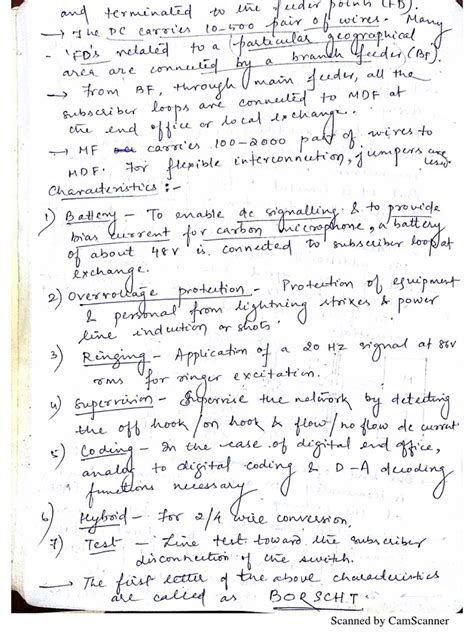 and terminated to the feeder points (FD).
→ The DC carries 10-500 pair of wires. Many
- 'FD's related to a particular geographical
area are connected by a branch feeder (BF).
→ From BF, through main feeder, all the
subscriber loops are connected to MDF at
the end office or local exchange.
→ MF carries 100-2000 pair of wires to
MDF. For flexible interconnection, jumpers are
used.
Characteristics :-
1) Battery - To enable dc signalling & to provide
bias current for carbon microphone, a battery
of about 48V is connected to subscriber loop at
exchange.
2) Overvoltage protection - Protection of equipment
& personal from lightning strikes & power
line induction or shots.
3) Ringing - Application of a 20 HZ signal at 86V
rms for ringer excitation.
4) Supervision - Supervise the network by detecting
the off hook/on hook & flow/no flow dc current
5) Coding - In the case of digital end office,
analog to digital coding & D-A decoding
functions necessary
6) Hybrid - For 2/4 wire conversion.
7) Test - Line test toward the subscriber
disconnection of the switch.
→ The first letter of the above characteristics
are called as BORSCHT.
Scanned by CamScanner